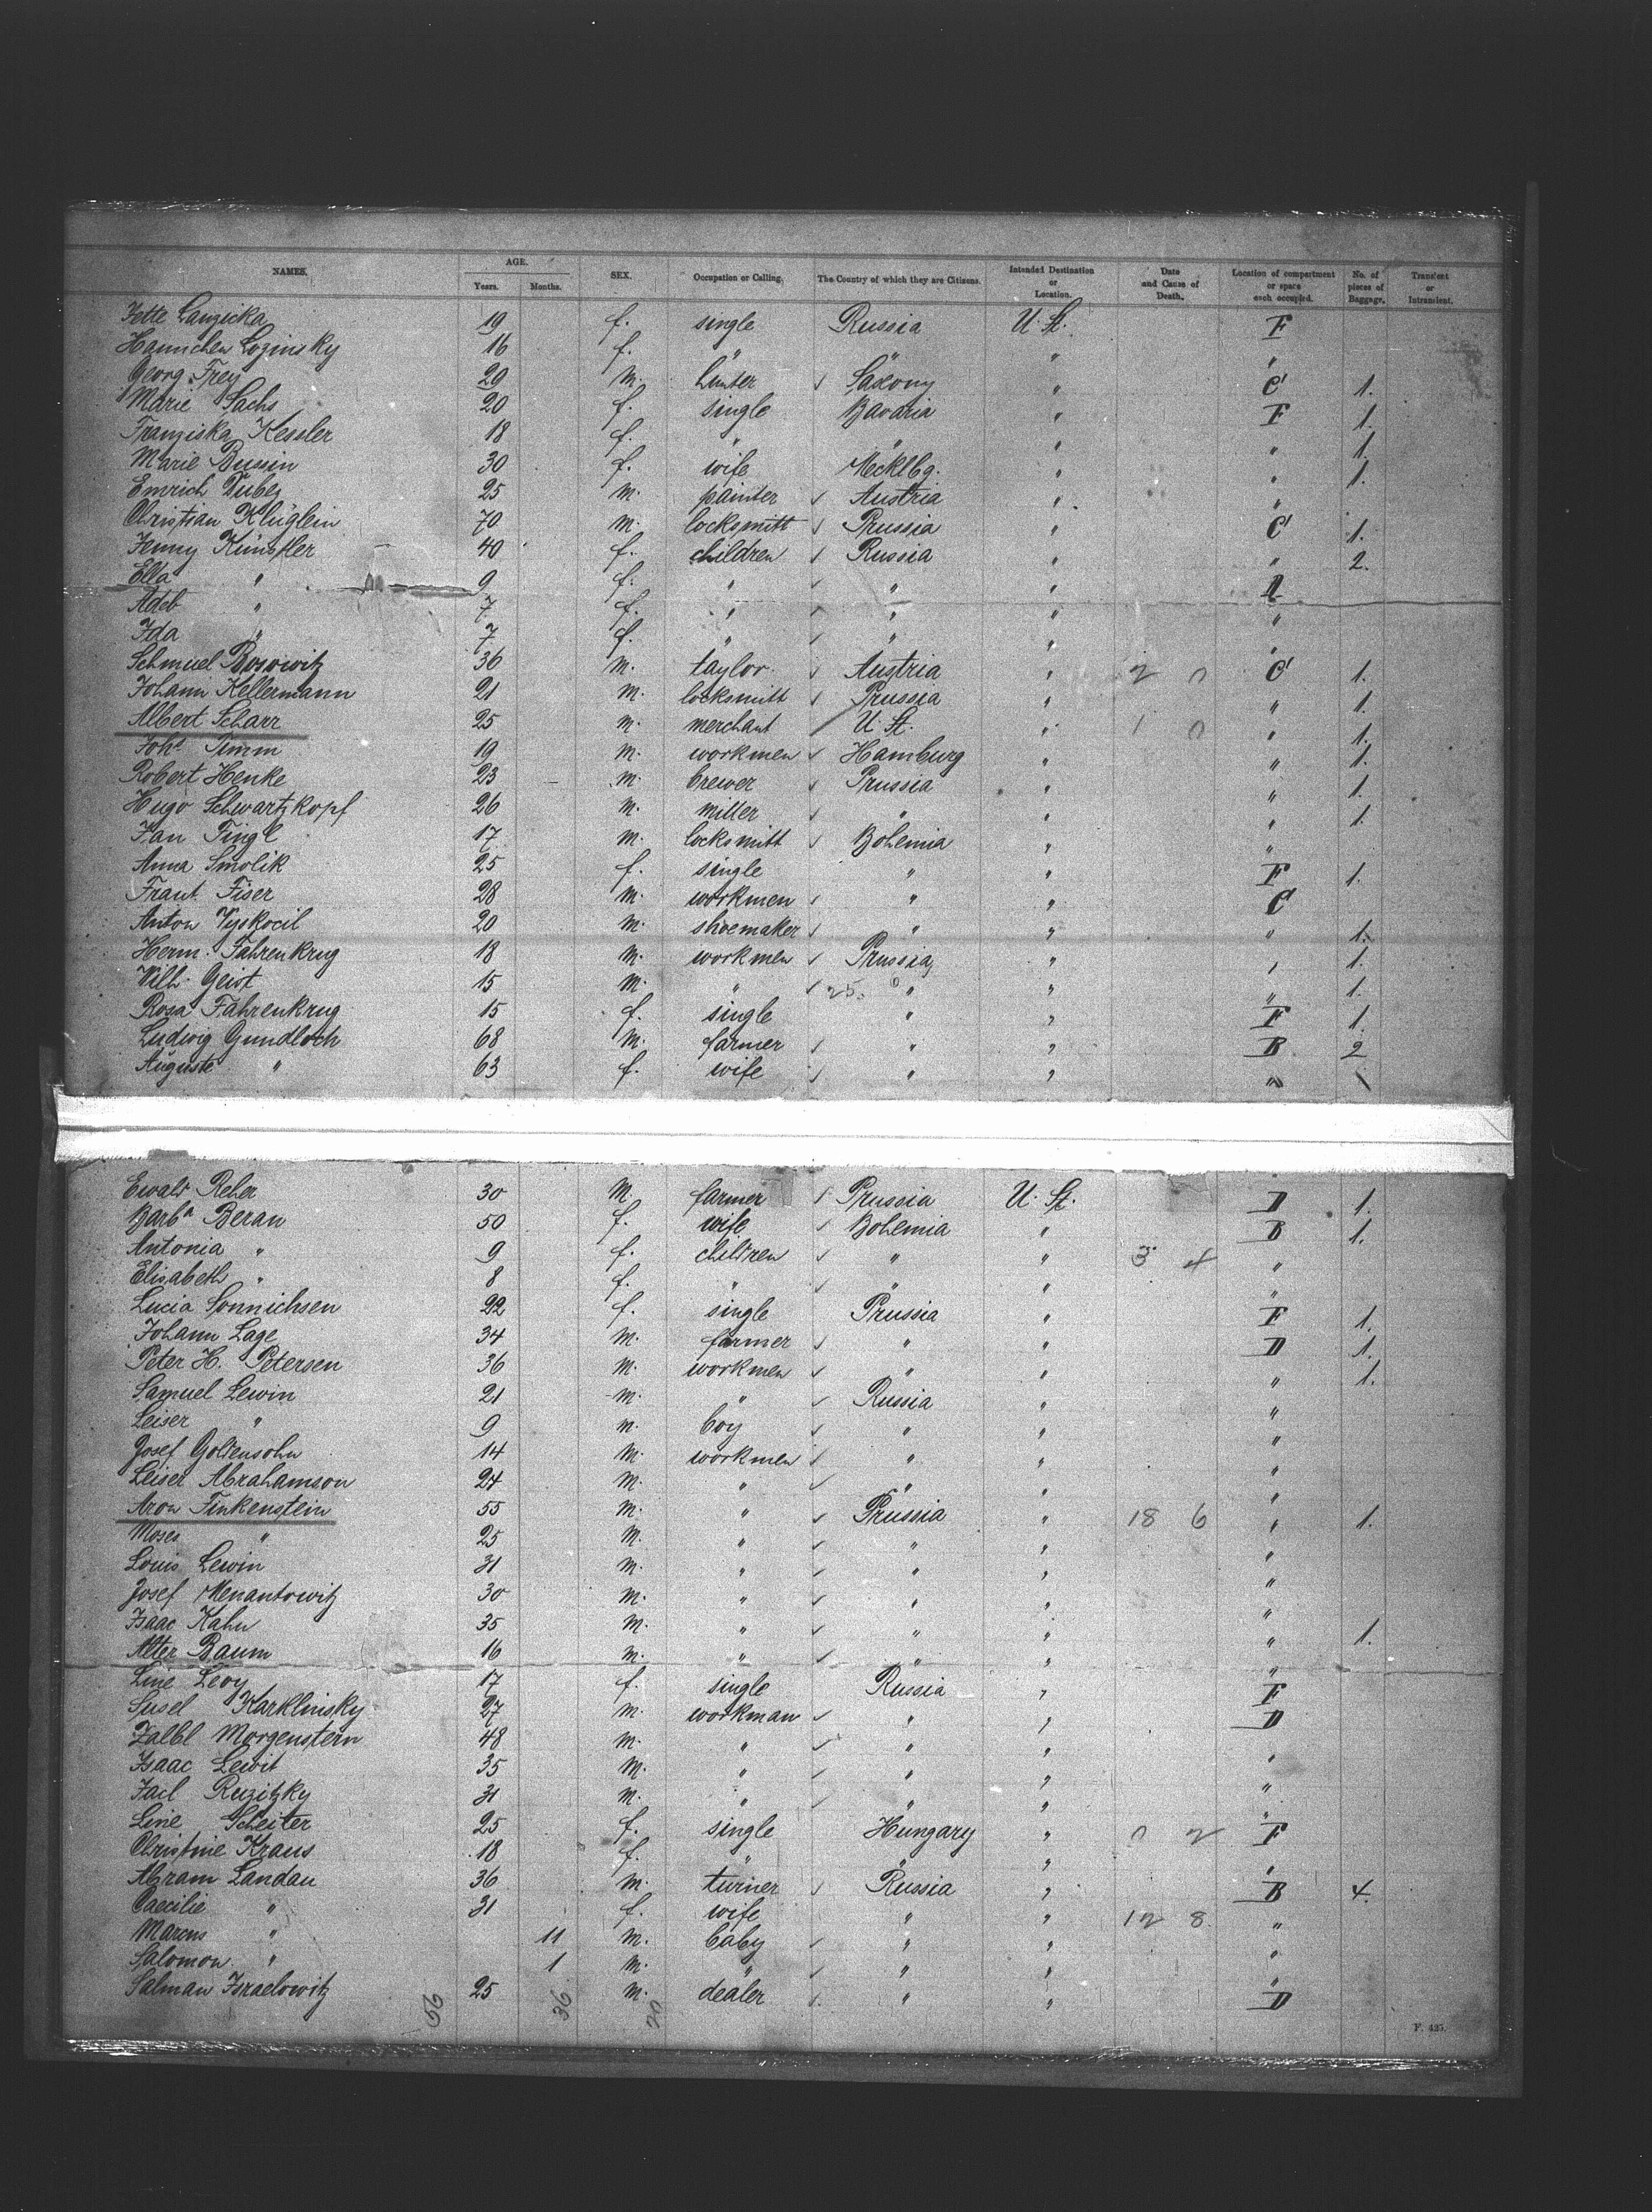 NAMES. AGE. Years. Months. SEX. Occupation or Calling. The Country of which they are Citizens. Intended Destination or Location. Date and Cause of Death. Location of compartment or space each occupied. No. of pieces of Baggage. Transient or Intransient.
Jette 19 f. single Russia U. St. F
Hannchen Lozinsky 16 f. " " " "
Georg Frey 29 m. hunter Saxony " C 1.
Marie Sachs 20 f. single Bavaria " F 1.
Franziska Kessler 18 f. " " " " 1.
Marie Bussin 30 f. wife Mecklbg. " " 1.
Emrich Dubez 25 m. painter Austria " "
Christian Klüglein 70 m. locksmitt Prussia " C 1.
Jenny Künstler 40 f. children Russia " " 2.
Ella " 9 f. " " "
" 7 f. " " " "
Ida " 7 f. " " " "
Schmuel 36 m. taylor Austria " 2 0 C 1.
Johann Kellermann 21 m. locksmitt Prussia " " 1.
Albert Scharr 25 m. merchant U. St. " 1 0 " 1.
Johs Timm 19 m. workmen Hamburg " " 1.
Robert Henke 23 m. brewer Prussia " " 1.
Hugo Schwartzkopf 26 m. miller " " " 1.
Jan Fingl 17 m. locksmitt Bohemia " "
Anna Smolik 25 f. single " " F 1.
Frant. Fiser 28 m. workmen " " C
Anton Vyskocil 20 m. shoemaker " " " 1.
Herm. Fahrenkrug 18 m. workmen Prussia " " 1.
Wilh. Geist 15 m. " 25 0 " " " 1.
Rosa Fahrenkrug 15 f. single " " F 1.
Ludwig Gundloch 68 m. farmer " " B 2
Auguste " 63 f. wife " " "
Ewald Reher 30 m farmer Prussia U. St. D 1.
Barba Beran 50 f. wife Bohemia " B 1.
Antonia " 9 f. children " " 3 4 "
Elisabeth " 8 f. " " " "
Lucia Sonnichsen 22 f. single Prussia " F 1.
Johann Lage 34 m. farmer " " D 1.
Peter H. Petersen 36 m. workmen " " " 1.
Samuel Lewin 21 m. " Russia " "
Leiser " 9 m. boy " " "
Josef Goldensohn 14 m. workmen " " "
Leiser Abrahamson 24 m. " " " "
Aron Finkenstein 55 m. " Prussia " 18 6 " 1.
Moses " 25 m. " " " "
Louis Lewin 31 m. " " " "
Josef Menantowitz 30 m. " " " "
Isaac Kahn 35 m. " " " " 1.
Alter Baum 16 m. " " " "
Line Levy 17 f. single Russia " F
Susel Karklinsky 27 m. workman " " D
Zalbl Morgenstern 48 m. " " " "
Isaac Lewit 35 m. " " " "
Ruzitzky 31 m. " " " "
Line Scheiter 25 f. single Hungary " 0 2 F
Christine Kraus 18 f. " " " "
Abram Landau 36 m. turner Russia " B 4.
Caecilie " 31 f. wife " " 12 8 "
Marcus " 11 m. baby " " "
Salomon " 1 m. " " " "
Salman Israelowitz 25 m. dealer " " D
56 36 20
F. 425.